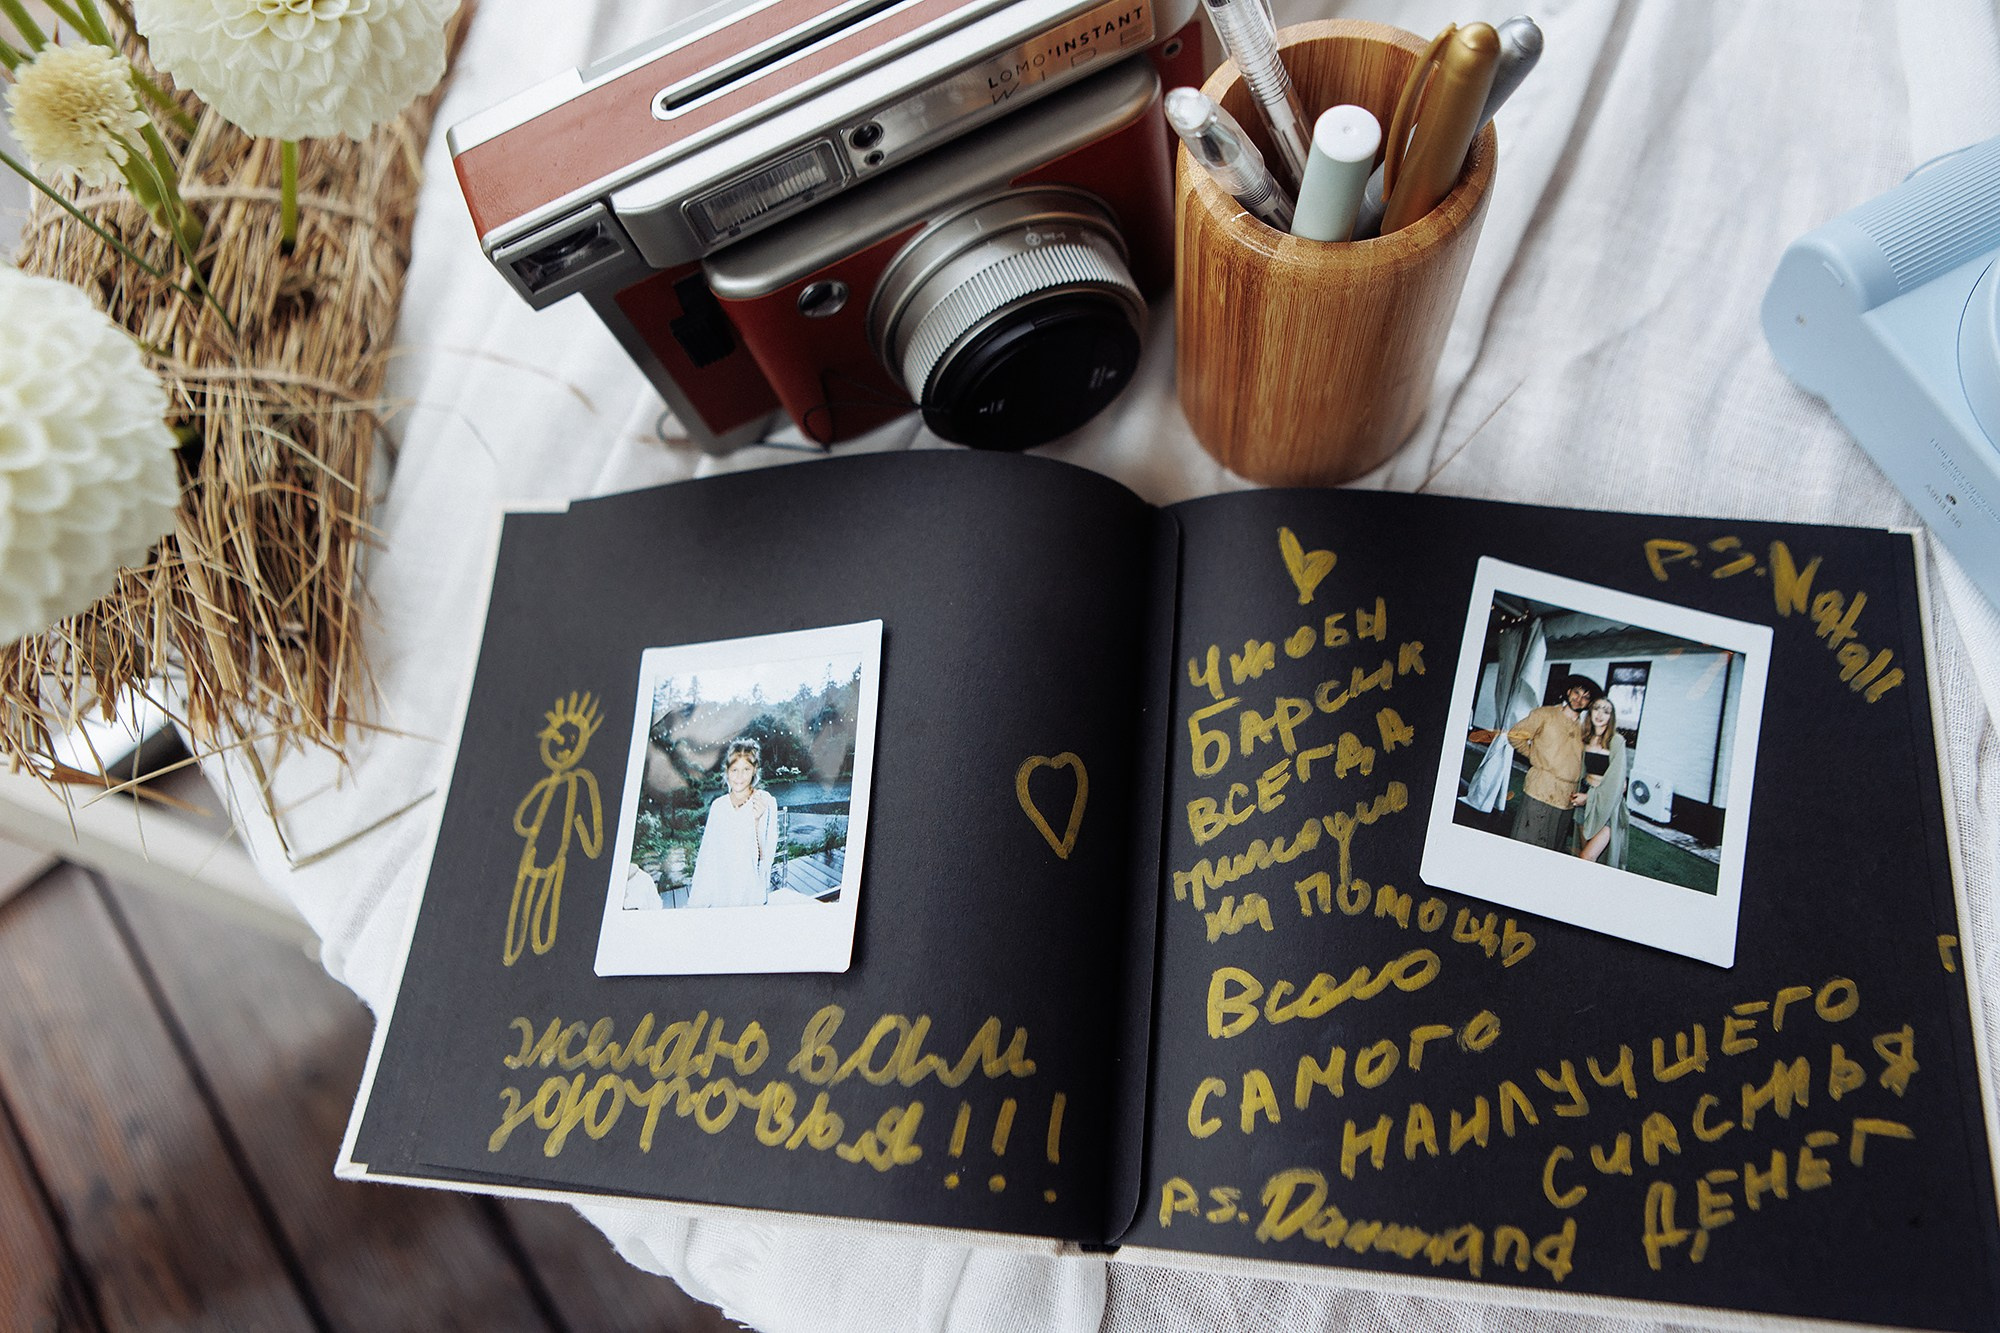 LOMO'INSTANT
WIDE
желаю вам
здоровья!!!
Чтобы
Барсик
всегда
приходил
на помощь
Всего
самого
наилучшего
счастья
денег
P.S.
P.S. Natali